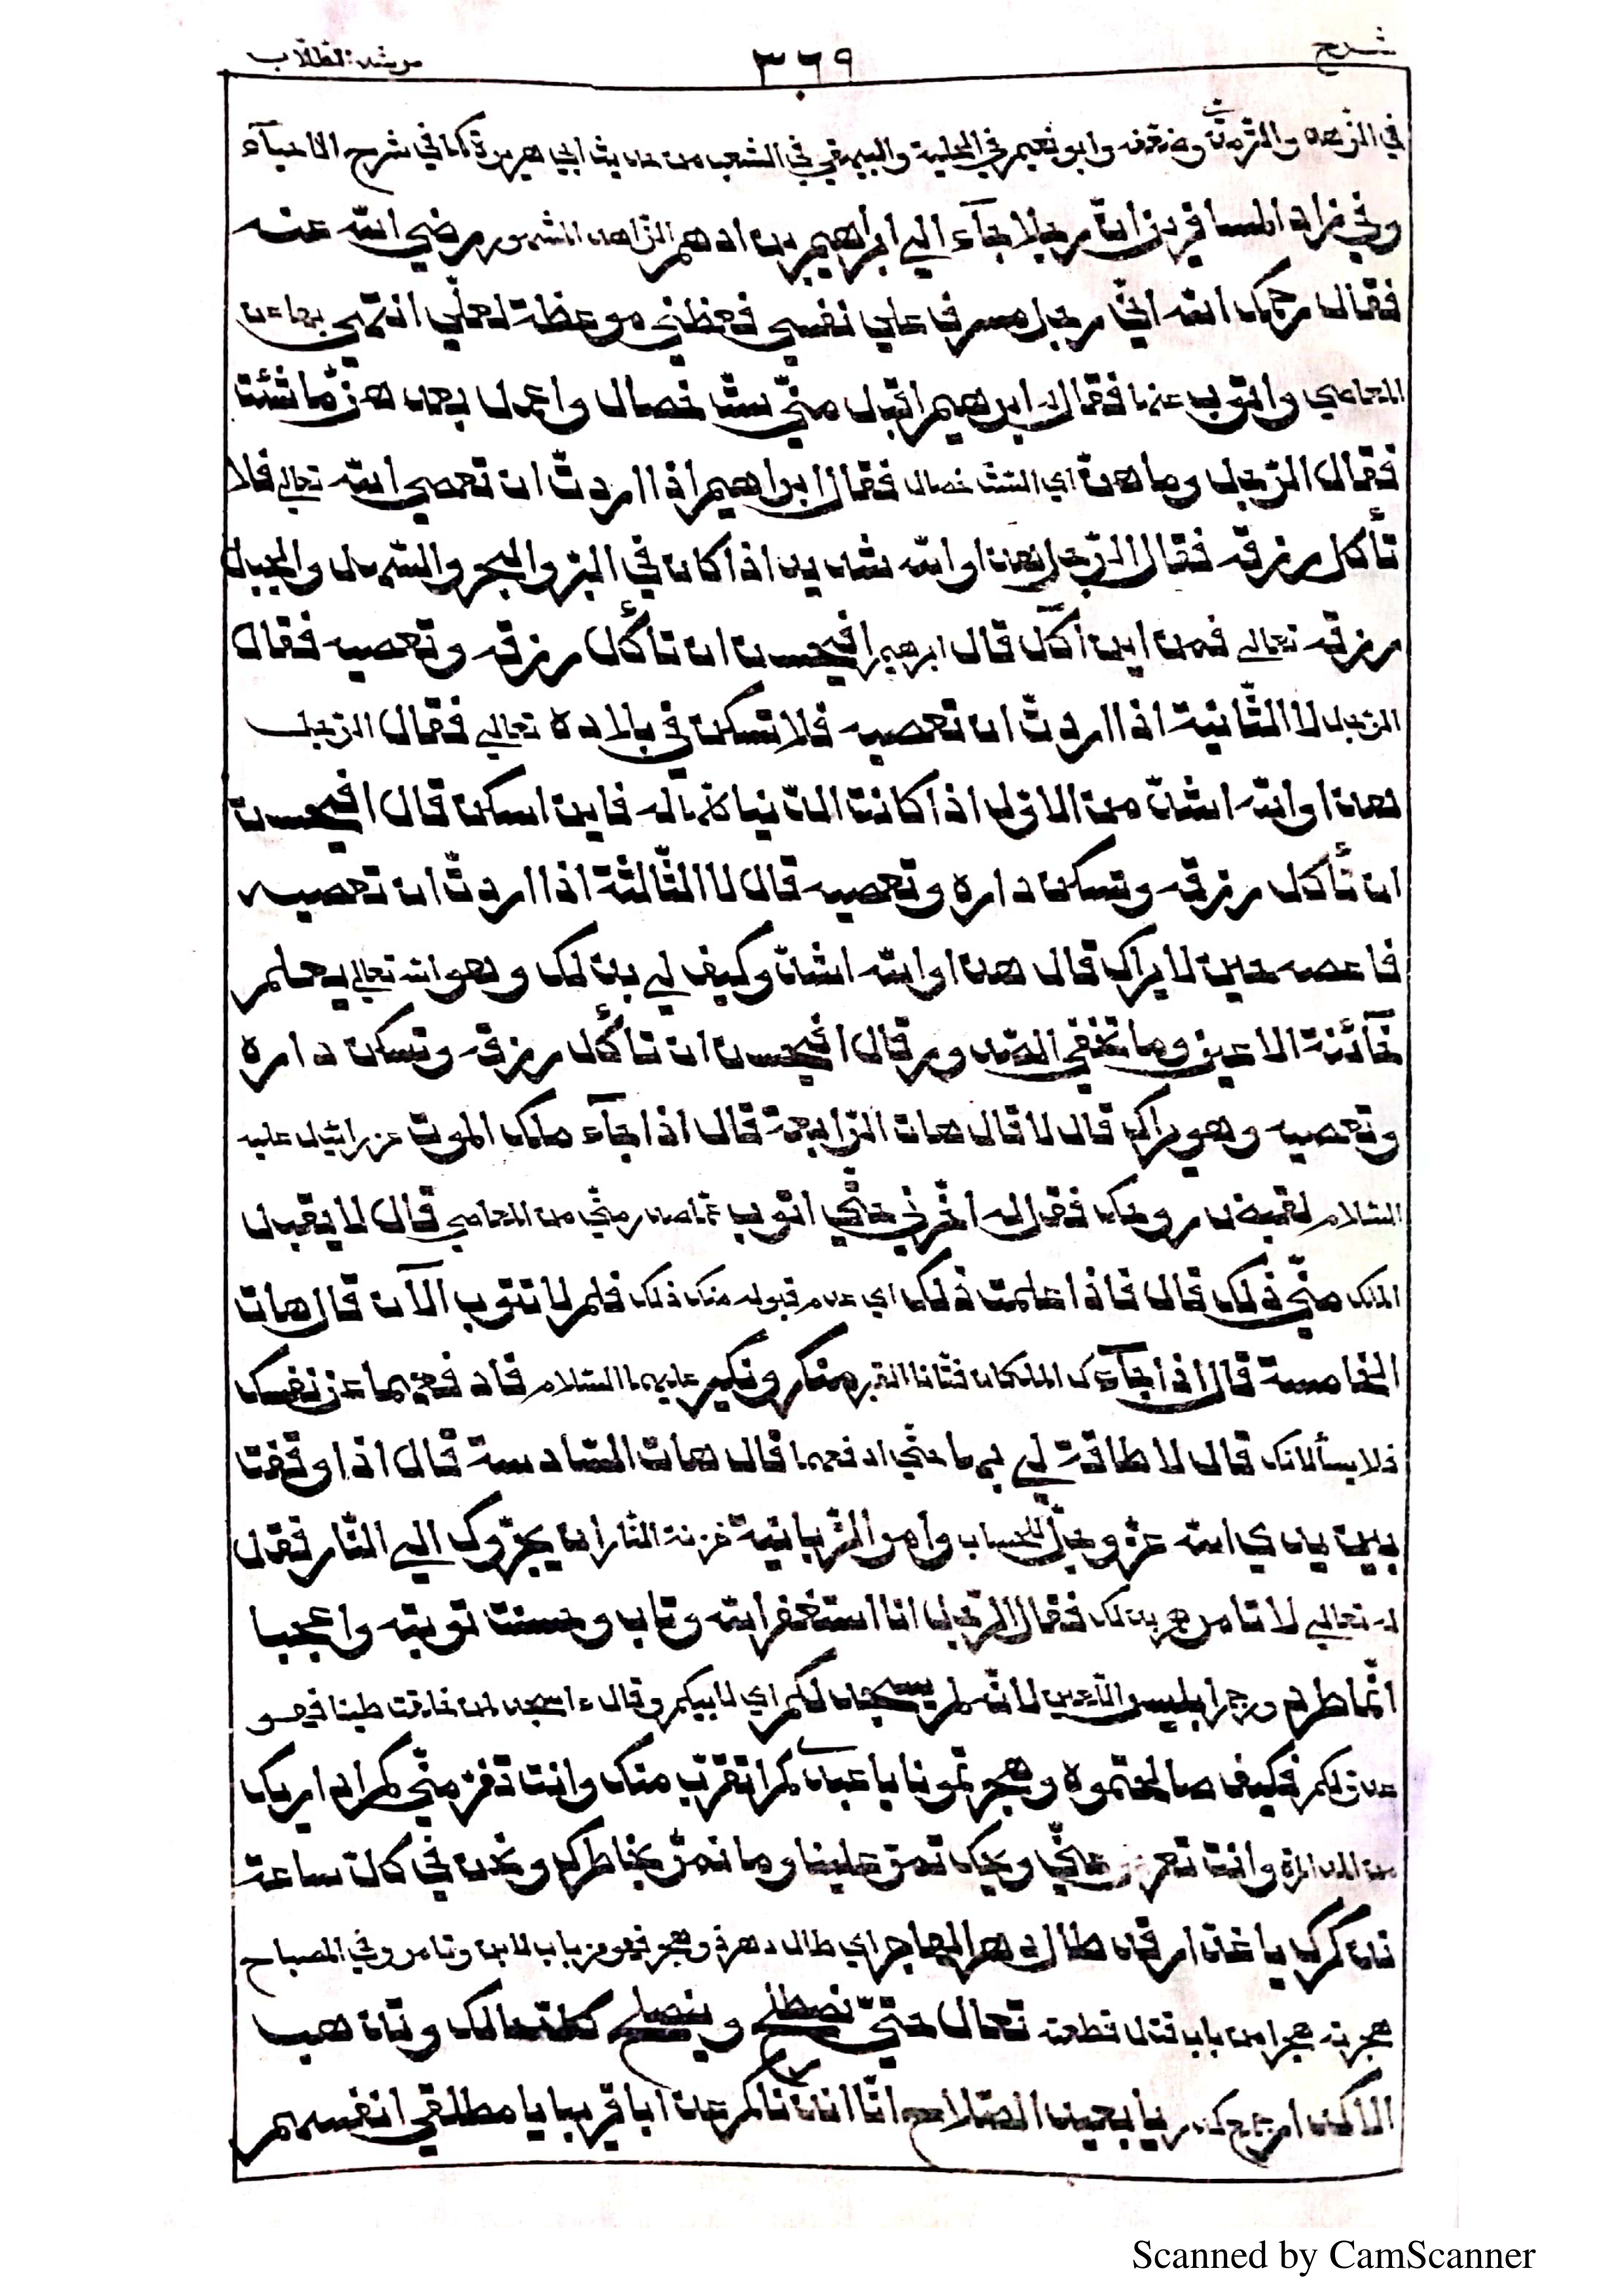 شرح ٣٦٩ مرشد الطلاب
في الزهد والترمذي وضعفه وابو نعيم في الحلية والبيهقي في الشعب من حديث ابي هريرة كما في شرح الاحيآء
وفي زاد المسافرين انّ رجلا جآء الي ابراهيم بن ادهم الزاهد المشهور رضي الله عنه
فقال رحمك الله انّي رجل مسرف علي نفسي فعظني موعظة لعلّي انتهي بها عن
المعاصي واتوب عنها فقال له ابرهيم اقبل منّي ستّ خصال واعمل بعد هنّ ما شئت
فقال الرّجل وما هنّ اي الستّ خصال فقال ابراهيم اذا اردتّ ان تعصي الله تعالي فلا
تأكل رزقه فقال الرّجل هذا والله شديد اذا كان في البرّ والبحر والسّهل والجبل
رزقه تعالي فمن اين أكل قال ابرهيم افيحسن ان تأكل رزقه وتعصيه فقال
الرّجل لا الثّانية اذا اردتّ ان تعصيه فلا تسكن في بلاده تعالي فقال الرّجل
هذا والله اشدّ من الاولي اذا كانت الدّنيا كلّها له فاين اسكن قال افيحسن
ان تأكل رزقه وتسكن داره وتعصيه قال لا الثّالثة اذا اردتّ ان تعصيه
فاعصه حين لا يراك قال هذا والله اشدّ وكيف لي بذلك وهو الله تعالي يعلم
خآئنة الاعين وما تخفي الصّدور قال افيحسن ان تأكل رزقه وتسكن داره
وتعصيه وهو يراك قال لا قال هات الرّابعة قال اذا جآء ملك الموت عزرائيل عليه
السّلام لقبض روحك فقل له اخّرني حتّي اتوب عمّا صدر منّي من المعاصي قال لا يقبل
الملك منّي ذلك قال فاذا علمت ذلك اي عدم قبوله منك ذلك فلم لا تتوب الآن قال هات
الخامسة قال اذا جآءك الملكان فتّانا القبر منكر ونكير عليهما السّلام فادفعهما عن نفسك
فلا يسألانك قال لا طاقة لي بهما حتّي ادفعهما قال هات السّادسة قال اذا وقفت
بين يدي الله عزّ وجلّ للحساب وامر الزّبانية خزنة النّار ان يجرّوك الي النّار فقل
له تعالي لا تأمرهم بذلك فقال الرّجل انا استغفر الله وتاب وحسنت توبته واعجبا
انّما طرد ورجم ابليس اللّعين لانّه لم يسجد لكم اي لابيكم وقال ءاسجد لمن خلقت طينا فهو
عدوّ لكم فكيف صالحتموه وهجرتمونا يا عبدي كم اتقرّب منك وانت تفرّ منّي كم اراد اريك
وانت تعرض عنّي ويحك تمنّ علينا وما نمرّ بخاطرك ونحن في كلّ ساعة
نذكرك يا هذا قد طال هر المهاجر اي طال دهره وهجر فهو من باب لابن وتامر وفي المصباح
هجرته هجرا من باب قتل قطعته تعال حتّي نصطلح وينصلح حالك وتذهب
انّا انذرناكم عذابا قريبا يا مطلقي انفسهم
Scanned by CamScanner